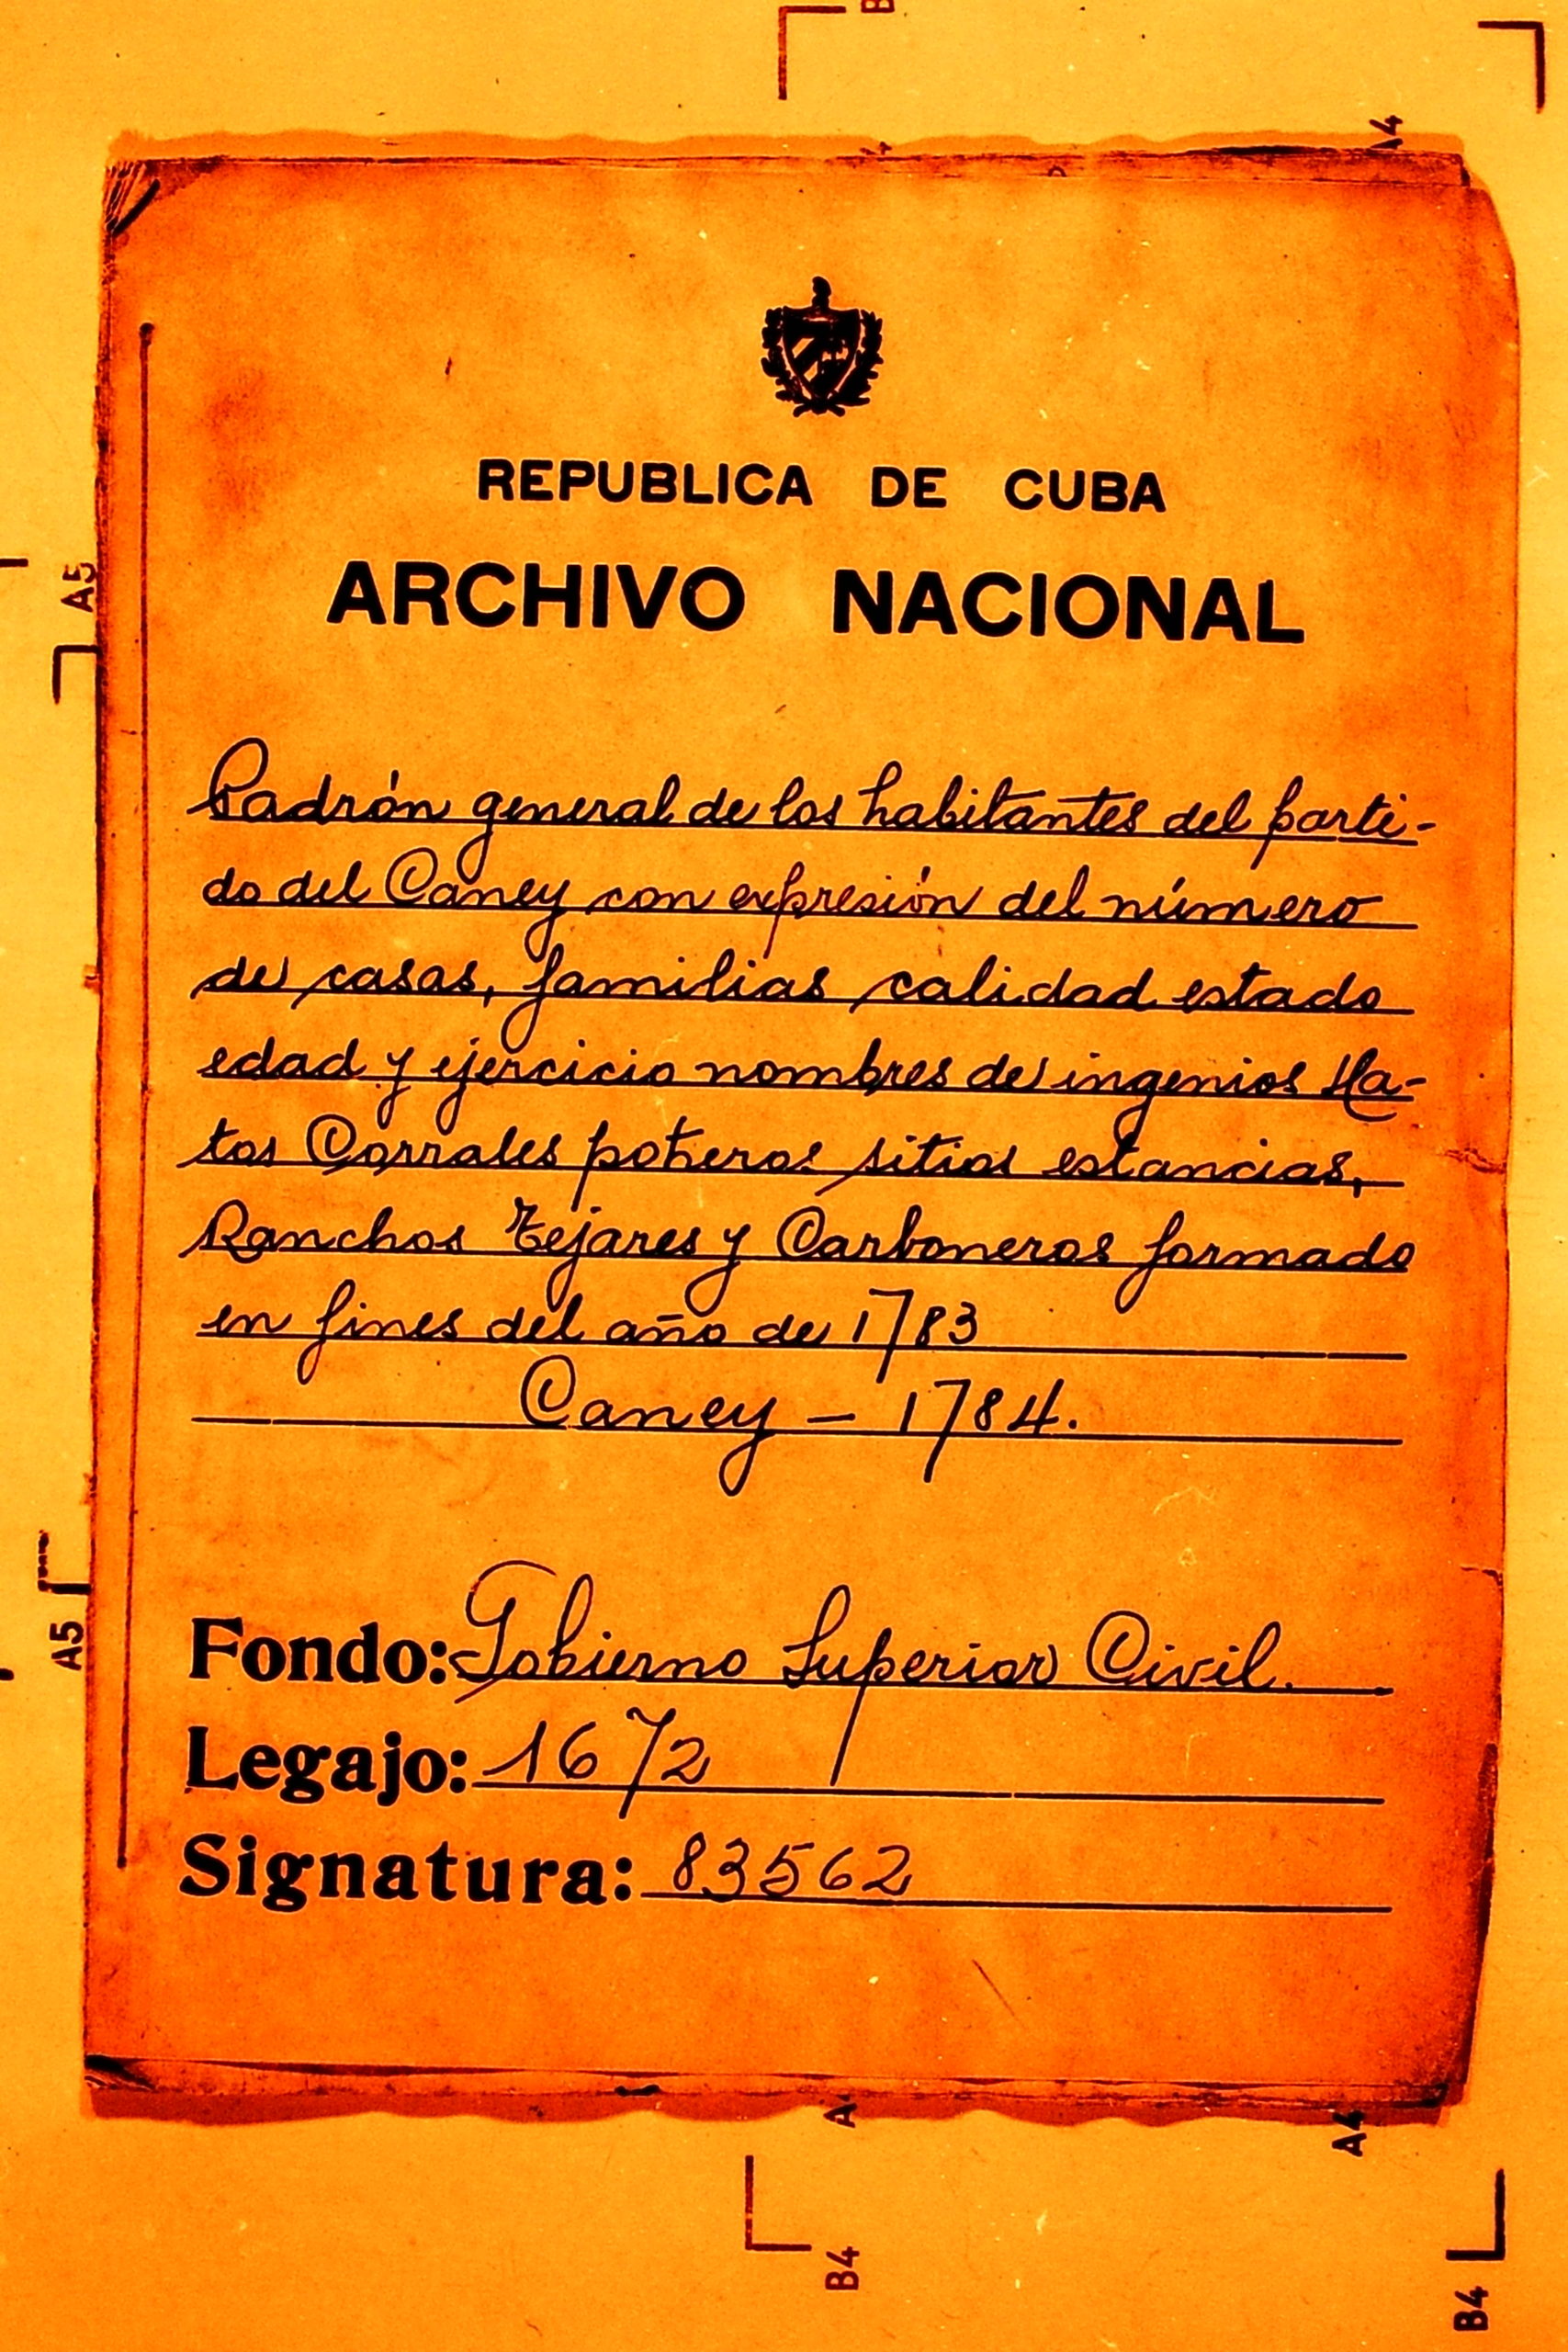 REPUBLICA DE CUBA
ARCHIVO NACIONAL
Padrón general de los habitantes del parti-
do del Caney con expresión del número
de casas, familias calidad estado
edad y ejercicio nombres de ingenios Ha-
tos Corrales potreros sitios estancias,
Ranchos Tejares y Carboneros formado
en fines del año de 1783
Caney – 1784.
Fondo: Gobierno Superior Civil.
Legajo: 1672
Signatura: 83562
A4
A5
A5
A4
B4
B4